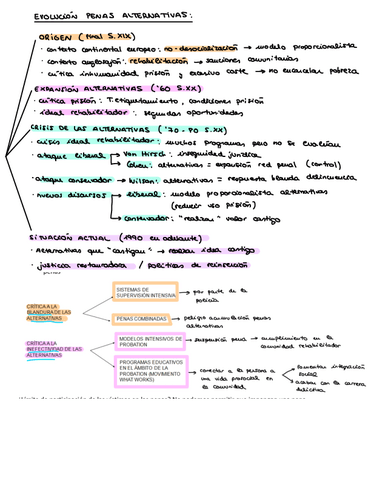 EVOLUCIÓN PENAS ALTERNATIVAS:
ORIGEN (final S.XIX)
· contexto continental europeo: no-desocialización → modelo proporcionalista
· contexto anglosajón: rehabilitación → sanciones comunitarias
· crítica inhumanidad prisión y excesivo coste → no encarcelar pobreza
EXPANSIÓN ALTERNATIVAS ('60 S.XX)
· crítica prisión: T. etiquetamiento, condiciones prisión
· ideal rehabilitador: segundas oportunidades
CRISIS DE LAS ALTERNATIVAS ('70-'80 S.XX)
· crisis ideal rehabilitador: muchos programas pero no se evalúan
· ataque liberal → Von Hirsch: inseguridad jurídica
→ Cohen: alternativas = expansión red penal (control)
· ataque conservador → Wilson: alternativas = respuesta blanda delincuencia
· nuevos discursos → liberal: modelo proporcionalista alternativas
(reducir uso prisión)
→ conservador: "realzar" valor castigo
SITUACIÓN ACTUAL (1990 en adelante)
· Alternativas que "castiguen" → realzar idea castigo
· justicia restauradora / políticas de reinserción
CRÍTICA A LA BLANDURA DE LAS ALTERNATIVAS
SISTEMAS DE SUPERVISIÓN INTENSIVA → por parte de la policía
PENAS COMBINADAS → peligro acumulación penas alternativas
CRÍTICA A LA INEFECTIVIDAD DE LAS ALTERNATIVAS
MODELOS INTENSIVOS DE PROBATION → suspensión pena → cumplimiento en la comunidad rehabilitador
PROGRAMAS EDUCATIVOS EN EL ÁMBITO DE LA PROBATION (MOVIMIENTO WHAT WORKS) → conectar a la persona a una vida prosocial en la comunidad
fomentar integración social
acabar con la carrera delictiva